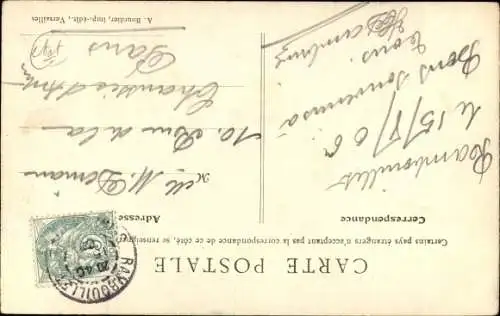 CARTE POSTALE
Certains pays étrangers n'acceptant pas la correspondance de ce côté, se renseigner
Correspondance
Adresse
Rambouillet
le 15/8/06
Bons souvenirs à
tous.
M. Demans
10, Rue de la
Chaussée d'Antin
Paris
RAMBOUILLET
A. Bourdier, imp.-édit., Versailles